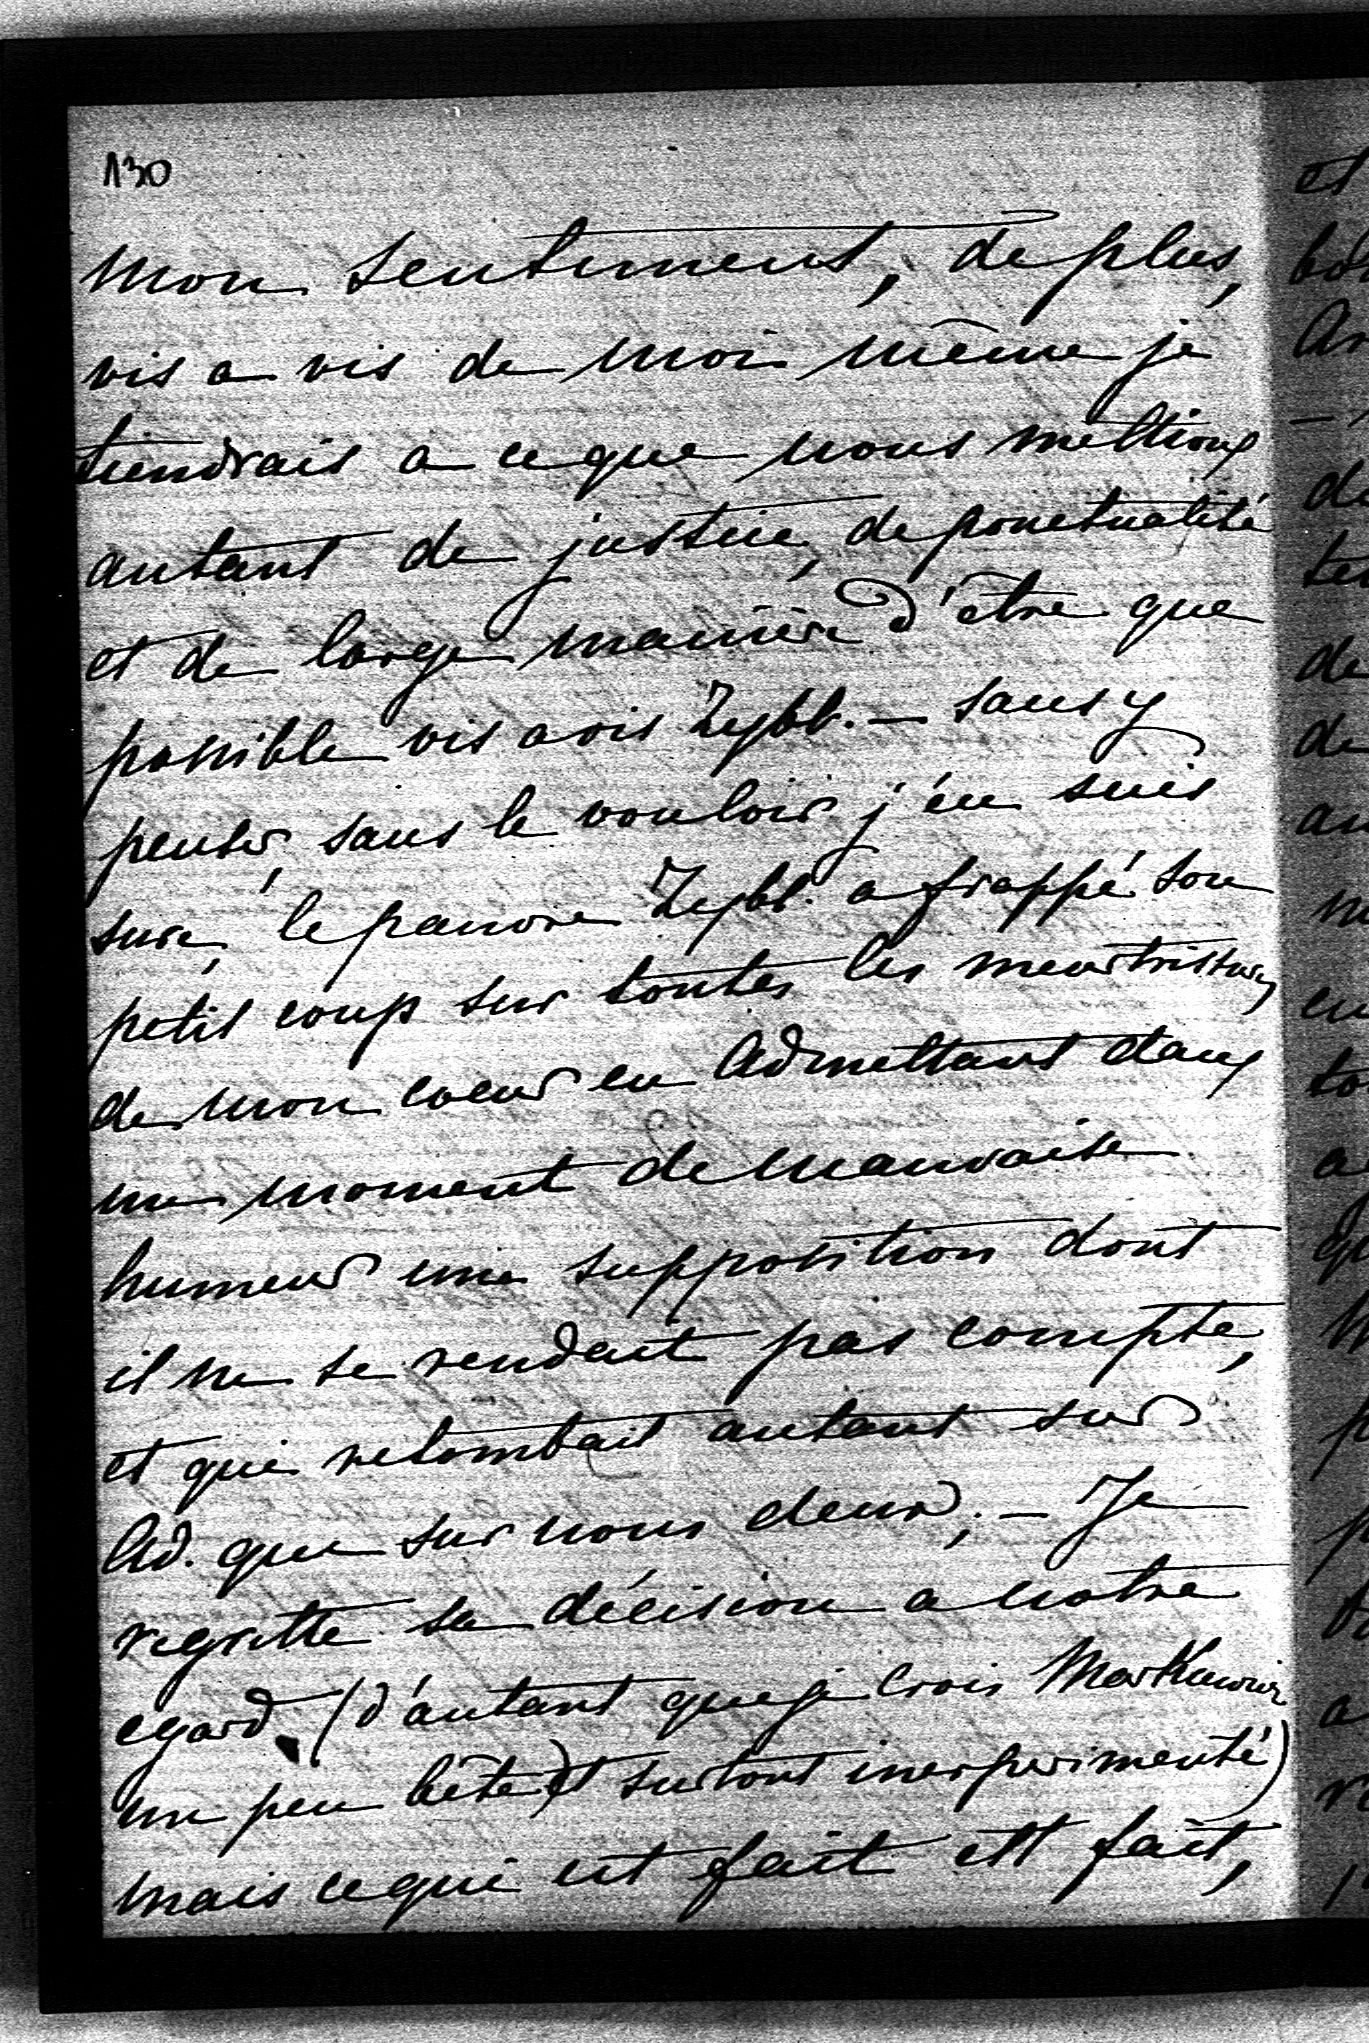 130
mon sentiment, de plus,
vis a vis de moi même je
tiendrais a ce que nous mettions
autant de justice, de ponctualité
et de large manière d'être que
possible vis a vis Zybl. — sans y
penser, sans le vouloir j'en suis
sure, le pauvre Zybl. a frappé son
petit coup sur toutes les meurtrissures
de mon coeur en admettant dans
un moment de mauvaise
humeur une supposition dont
il ne se rendait pas compte,
et qui retombait autant sur
Ad. que sur nous deux; — Je
regrette sa décision a notre
egard (d'autant que je crois
un peu bête) et surtout inexperimenté)
mais ce qui est fait est fait,